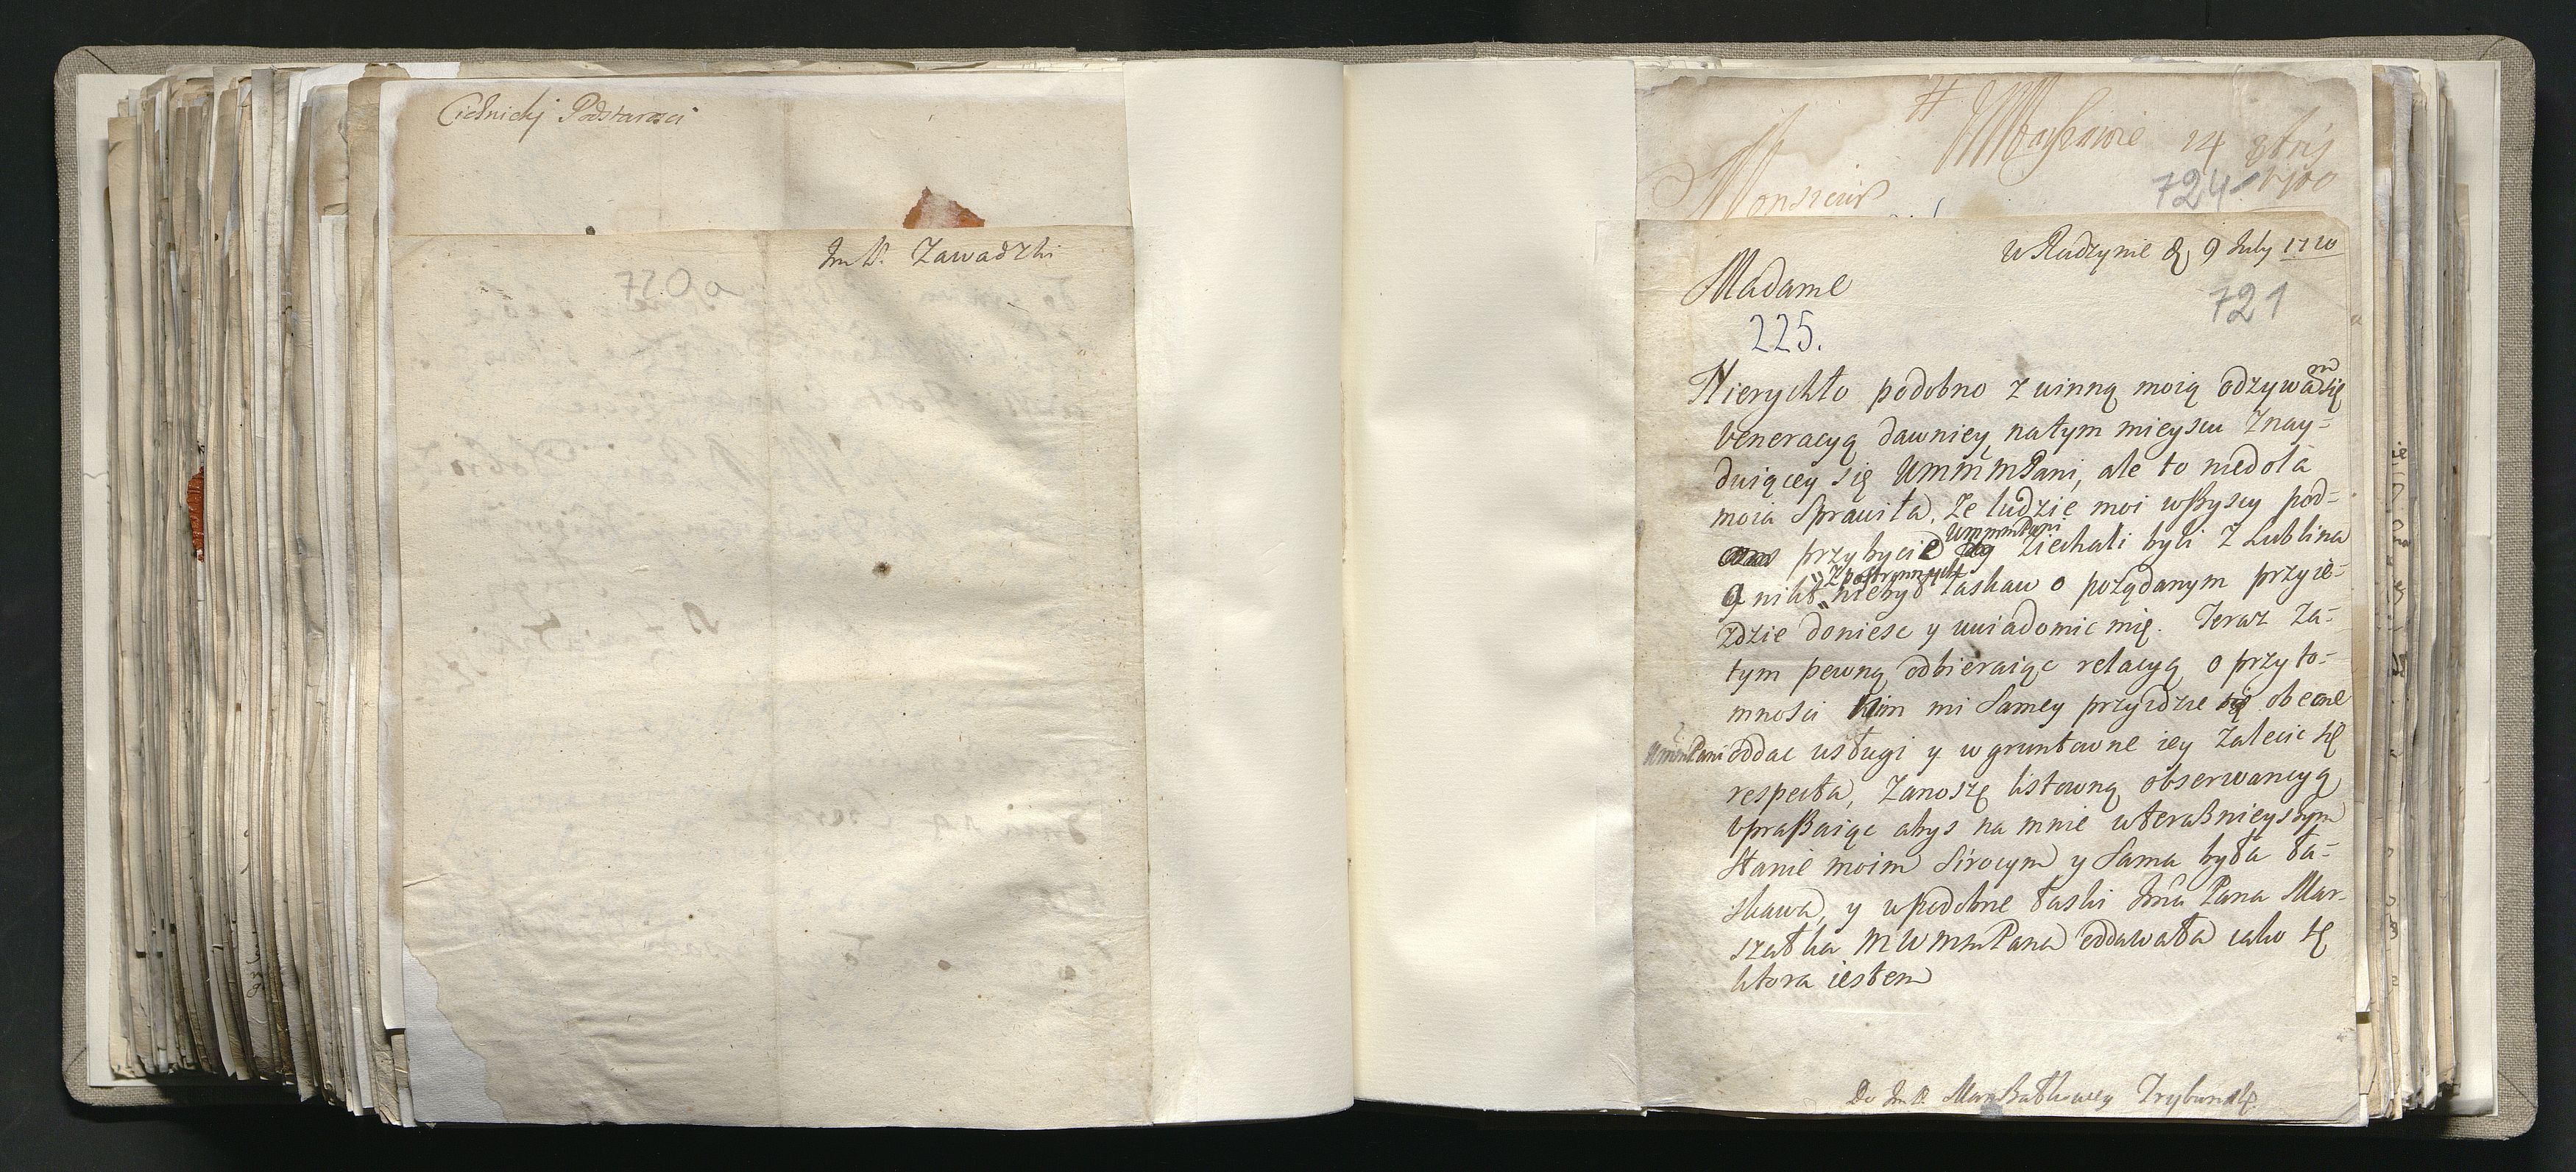 Cielnicky Podstarosci
Im P. Zawadzki
720a
Warszawie 14
724
Monsieur
w Radzynie d 9 July 1720
Madame
721
225.
Nierychło podobno z winną moią odzywam się
veneracyą dawniey natym mieyscu Znay-
duiącey się WmmmPani, ale to niedola
moia Sprawiła, Ze ludzie moi wszyscy pod-
przybycie WmmmPani Ziechali byli Z Lublina
a nikt z postronnych niebył łaskaw o poządanym przyie-
zdzie doniesc y uwiadomic mię. Teraz Za-
tym pewną odbieraiąc relacyą o przyto-
mnosci Nim mi Samey przyidzie obecne
WmmPani oddac usługi y w gruntowne iey Zalecic się
respecta, Zanoszę listowną obserwancyą
vpraszaiąc abys na mnie w teraznieyszym
Stanie moim Sirocym y Sama była ła-
skawa, y w podobne łaski Imci Pana Mar-
szałka MWmmPana oddawała iako tę
ktora iestem
Do Im P. Marszałkowey Trybunalę.